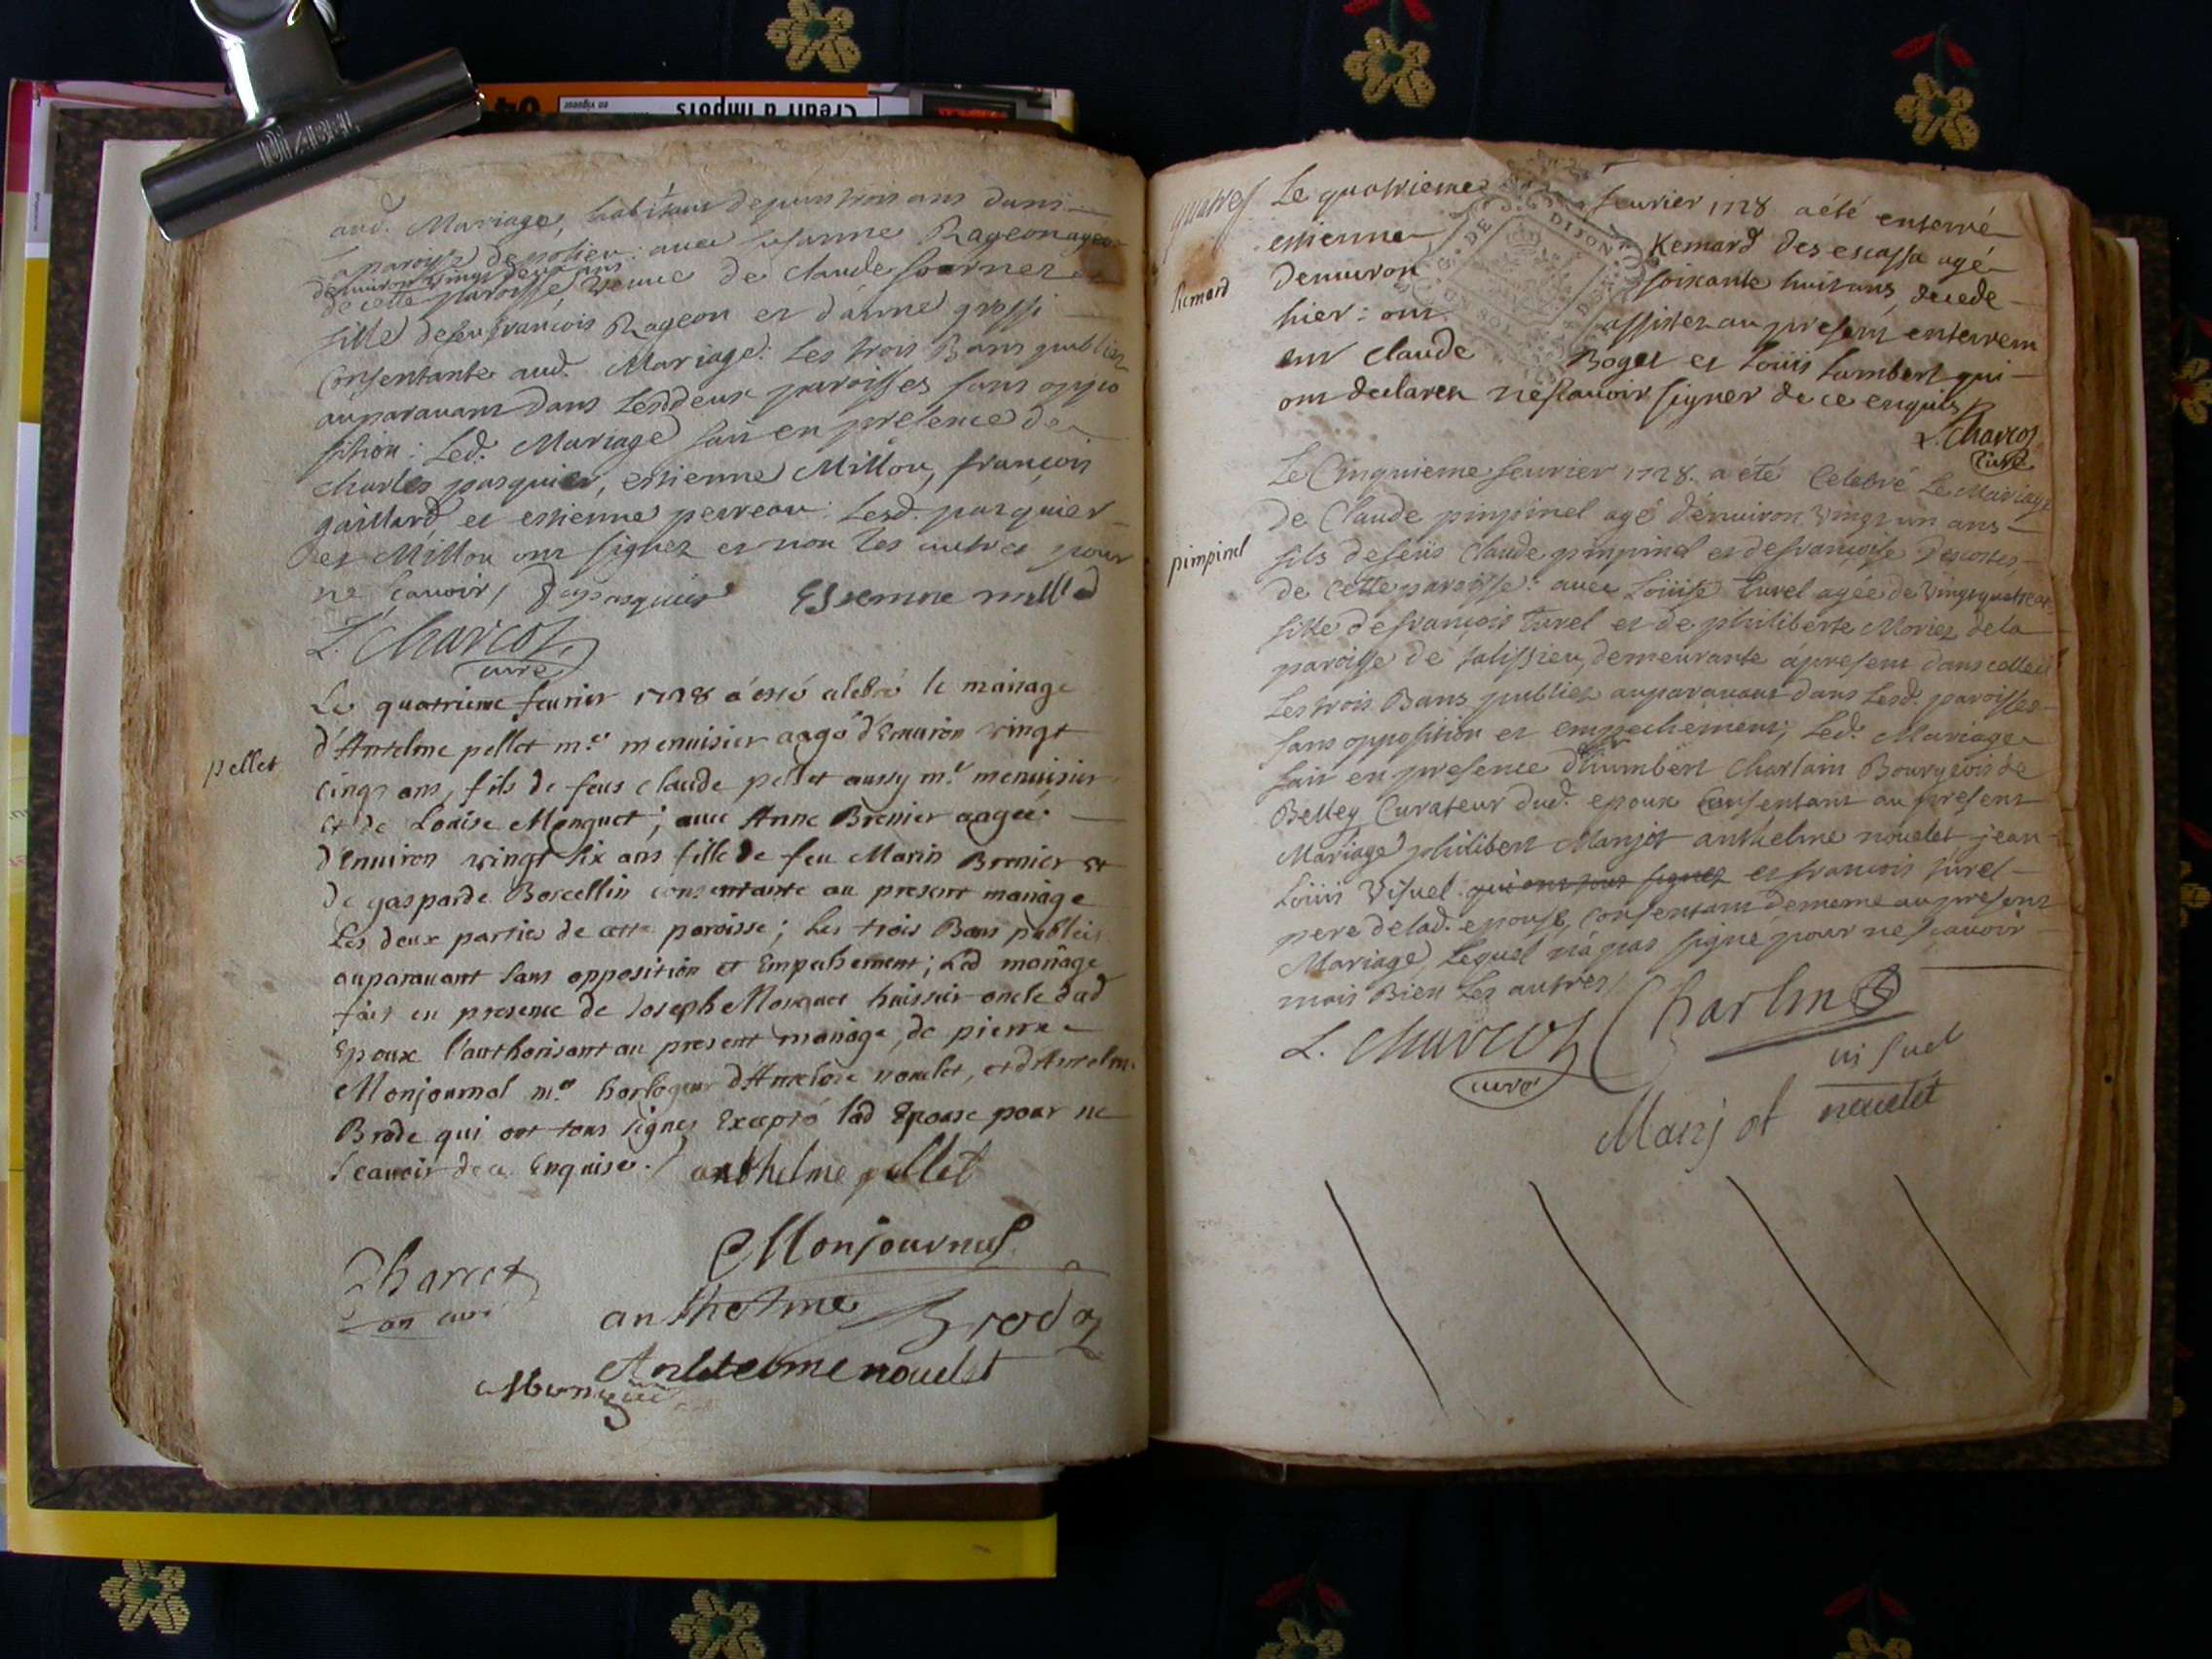 aud. Mariage, habitant depuis trois ans dans
la paroisse de polieu: avec susanne Rageon agée
denviron vingt deux ans
de cette paroisse veuve de Claude fournier et
fille de feu francois Rageon et danne grossi
Consentante aud. Mariage: Les trois Bans publiez
auparavant dans Lesd deux paroisses sans oppo
sition: Led. Mariage fait en presence de
Charles pasquier, estienne Millou, françois
gaillard et estienne perreau: Lesd. pasquier
et Millou ont signez et non les autres pour
ne scavoir
Essemne
L. Charcot
curé
pellet
Le quatrieme feurier 1728 a esté celebré le mariage
d'Antelme pellet m.e menuisier aagé d'Enuiron vingt
cinqz ans, fils de feus claude pellet aussy m.e menuisier
et de Louise Monguet; auec Anne Brenier aagée
d'Enuiron vingt six ans fille de feu Marin Brenier et
de gasparde Borcellin consentante au present mariage
Les deux parties de cette paroisse; Les trois Bans publiéz
auparauant sans opposition et Empechement; Led mariage
fait en presence de Joseph Monguet huissier oncle dud
Epoux l'authorisant au present mariage, de pierre
Monjournal m.e horlogeur d'Antelme nouelet, et d'Antelme
Brode qui ont tous signez Excepté lad Epouse pour ne
scauoir de ce Enquise. anthelme pellet
Monjournal
anthelme Brode
Anthelme nouelet
quatre
Le quatrieme feurier 1728 a été enterré
Remard
estienne Remard des escassa agé
denuiron soixante huit ans, decede
hier: ont assistez au present enterrem
ent Claude Boget et Loüis Lambert qui
ont declarez ne scauoir signer de ce enquis
L. Charcot
Curé
pimpinel
Le Cinquieme feurier 1728. a été Celebré Le Mariage
de Claude pimpinel agé d'enuiron vingt un ans
fils de feüs Claude pimpinel et de françoise Descotes,
de cette paroisse: auec Loüise turel agée de vingt quatre ans
fille de françois Turel et de philiberte Moriez de la
paroisse de talissieu, demeurante apresent dans celle cy
Les trois Bans publiez auparauant dans Lesd. paroisses
sans opposition et empechement; Led. Mariage
fait en presence d'humbert Charlain Bourgeois de
Belley Curateur dud. epoux Consentant au present
Mariage philibert Manjot anthelme nouelet jean
Loüis Visuel qui ont tous signez et françois turel
pere de lad. epouse, Consentant de meme au present
Mariage, Lequel n'a pas signé pour ne scauoir
mais Bien Les autres
L. Charcot
curé
Charlin
visuel
Manjot nouelet